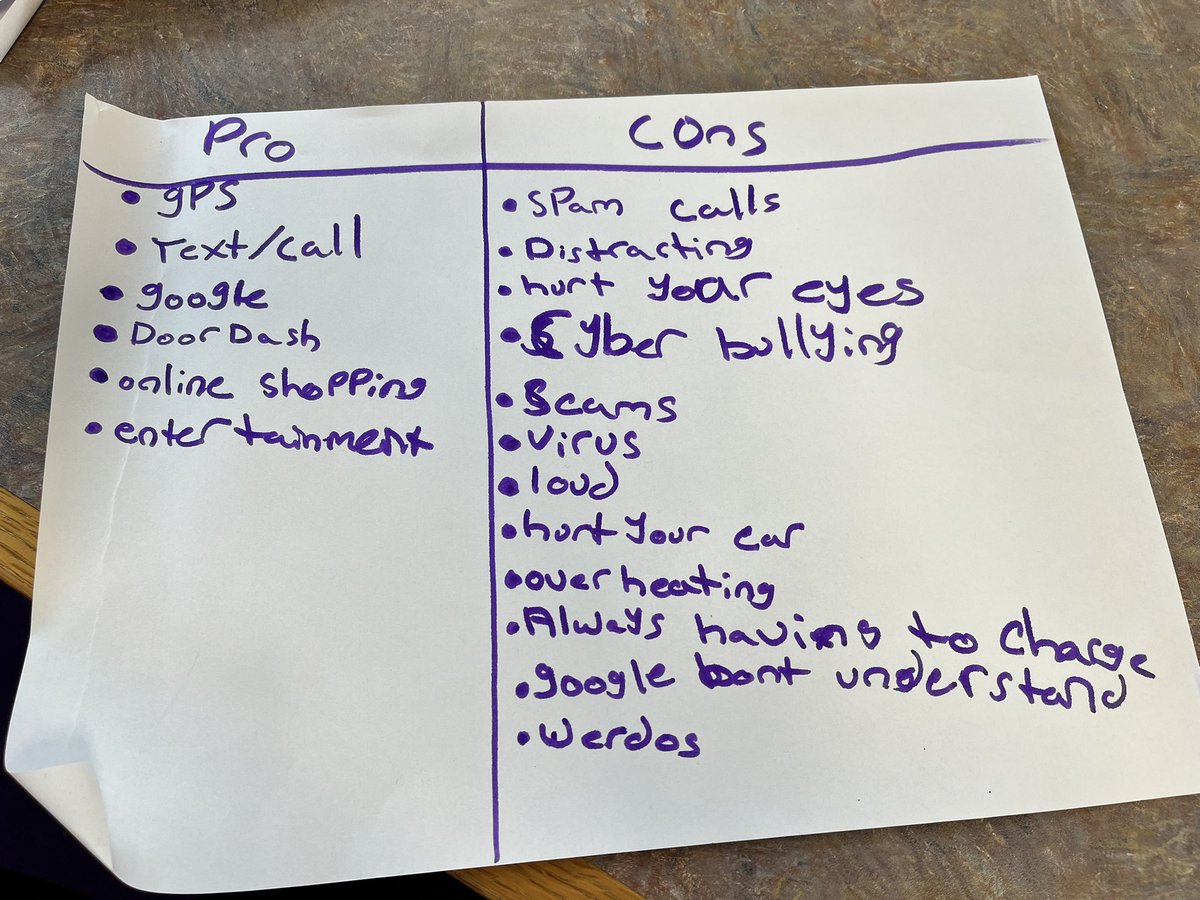 Pro
gPS
Text/Call
google
DoorDash
online shopping
entertainment
Cons
SPam calls
Distracting
hurt your eyes
Cyber bullying
Scams
Virus
loud
hurt your ear
overheating
Always having to Charge
google dont understand
Werdos